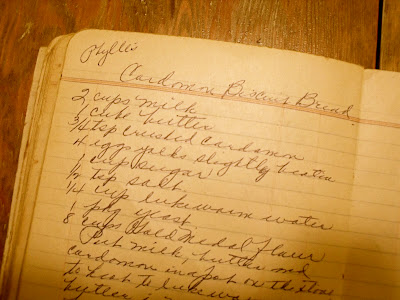 Phyllis
Cardomon Biscuit Bread
2 cups milk
1 cube butter
3/4 tsp crushed cardamon
4 eggs yolks slightly beaten
1 cup sugar
1/2 tsp salt.
1/4 cup lukewarm water
1 pkg yeast.
8 cups Gold Medal flour
Put milk, butter and
cardomon in a pot on the stove
to heat to lukewarm